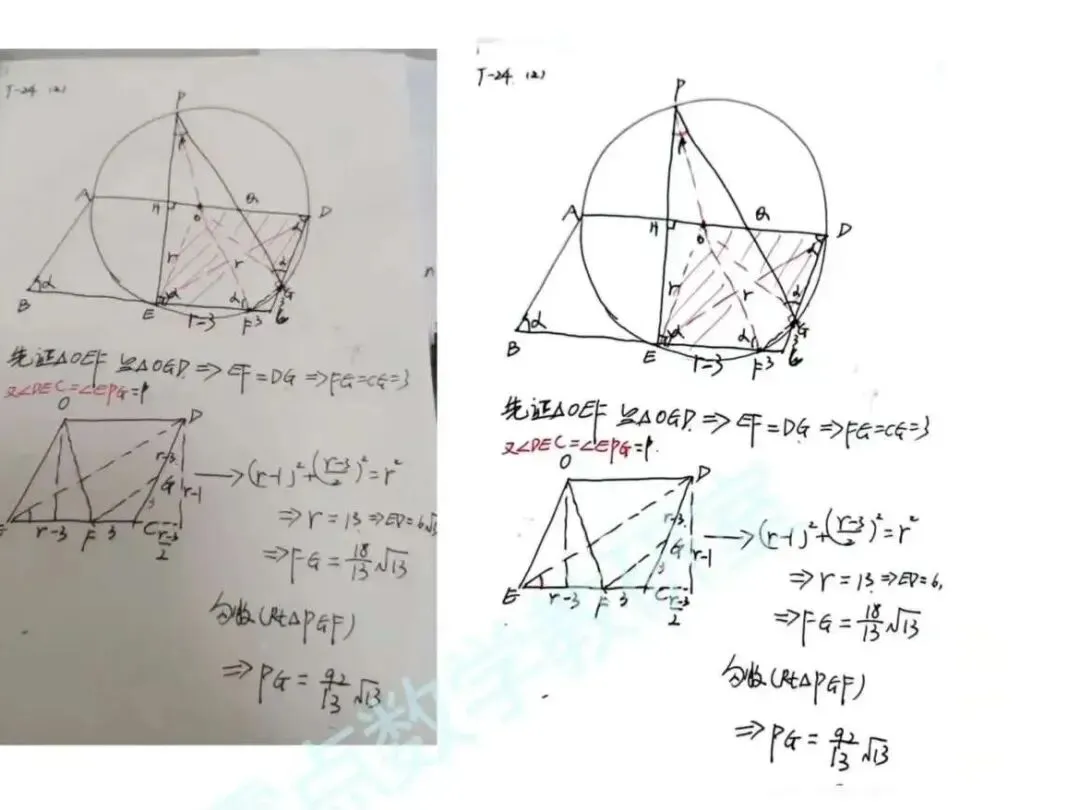 T-24 (2)
P
A
H
O
Q
D
r
r
α
α
G
B
α
E
α
α
F
3
r-3
先证△OEF≌△OGD⇒EF=DG⇒FG=CG=3
又∠DEC=∠EPG=β
O
D
r-3
G
3
r-1
E
r-3
F
3
C
r-3
2
→(r-1)²+(r-3/2)²=r²
⇒r=13⇒ED=6√13
⇒FG=18/13√13
勾股(Rt△PGF)
⇒PG=92/13√13
T-24 (2)
P
A
H
O
Q
D
r
r
α
α
G
B
α
E
α
α
F
3
r-3
先证△OEF≌△OGD⇒EF=DG⇒FG=CG=3
又∠DEC=∠EPG=β
O
D
r-3
G
3
r-1
E
r-3
F
3
C
r-3
2
→(r-1)²+(r-3/2)²=r²
⇒r=13⇒ED=6
⇒FG=18/13√13
勾股(Rt△PGF)
⇒PG=92/13√13
点数学教